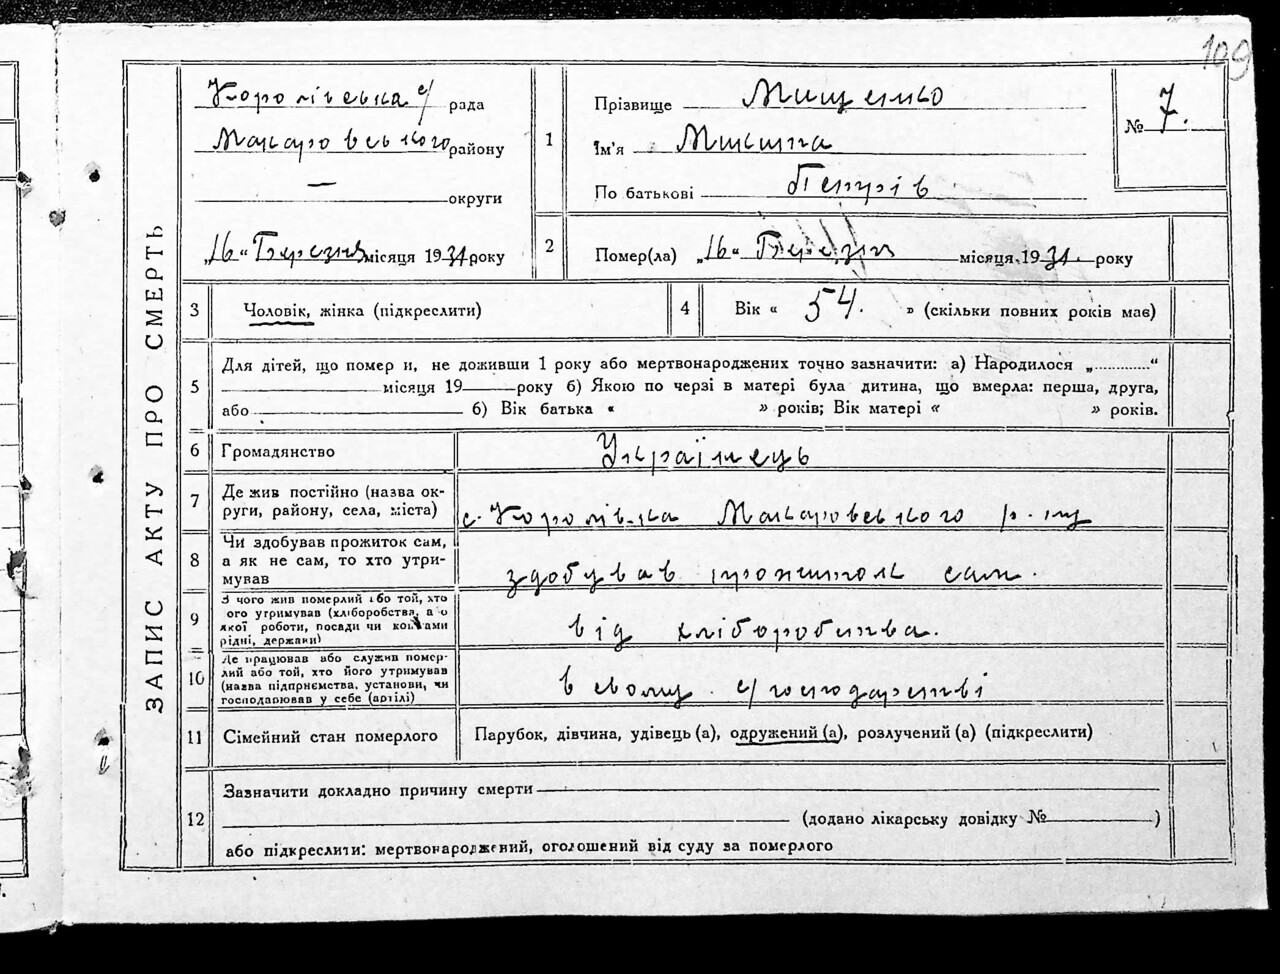 109
ЗАПИС АКТУ ПРО СМЕРТЬ
Королівська с/ рада
Макаровського району
— округи
„16“ Березня місяця 1931 року
1
Прізвище Мищенко
Ім'я Микита
По батькові Петрів
№ 7.
2
Помер(ла) „16“ Березня місяця 1931. року
3 Чоловік, жінка (підкреслити)
4 Вік « 54. » (скільки повних років має)
5
Для дітей, що помер и, не доживши 1 року або мертвонароджених точно зазначити: а) Народилося „............“
місяця 19 року б) Якою по черзі в матері була дитина, що вмерла: перша, друга,
або б) Вік батька « » років; Вік матері « » років.
6 Громадянство Українець
7
Де жив постійно (назва ок-
руги, району, села, міста) с. Королівка Макаровського р-ну
8
Чи здобував прожиток сам,
а як не сам, то хто утри-
мував здобував прожиток сам.
9
З чого жив померлий або той, хто
ого утримував (хліборобства, а о
якої роботи, посади чи коштами
рідні, держави) від хліборобства.
10
Де працював або служив помер-
лий або той, хто його утримував
(назва підприємства, установи, чи
господарював у себе (артілі) в свому с/господарстві
11 Сімейний стан померлого Парубок, дівчина, удівець (а), одружений (а), розлучений (а) (підкреслити)
12
Зазначити докладно причину смерти
(додано лікарську довідку № )
або підкреслити: мертвонароджений, оголошений від суду за померлого